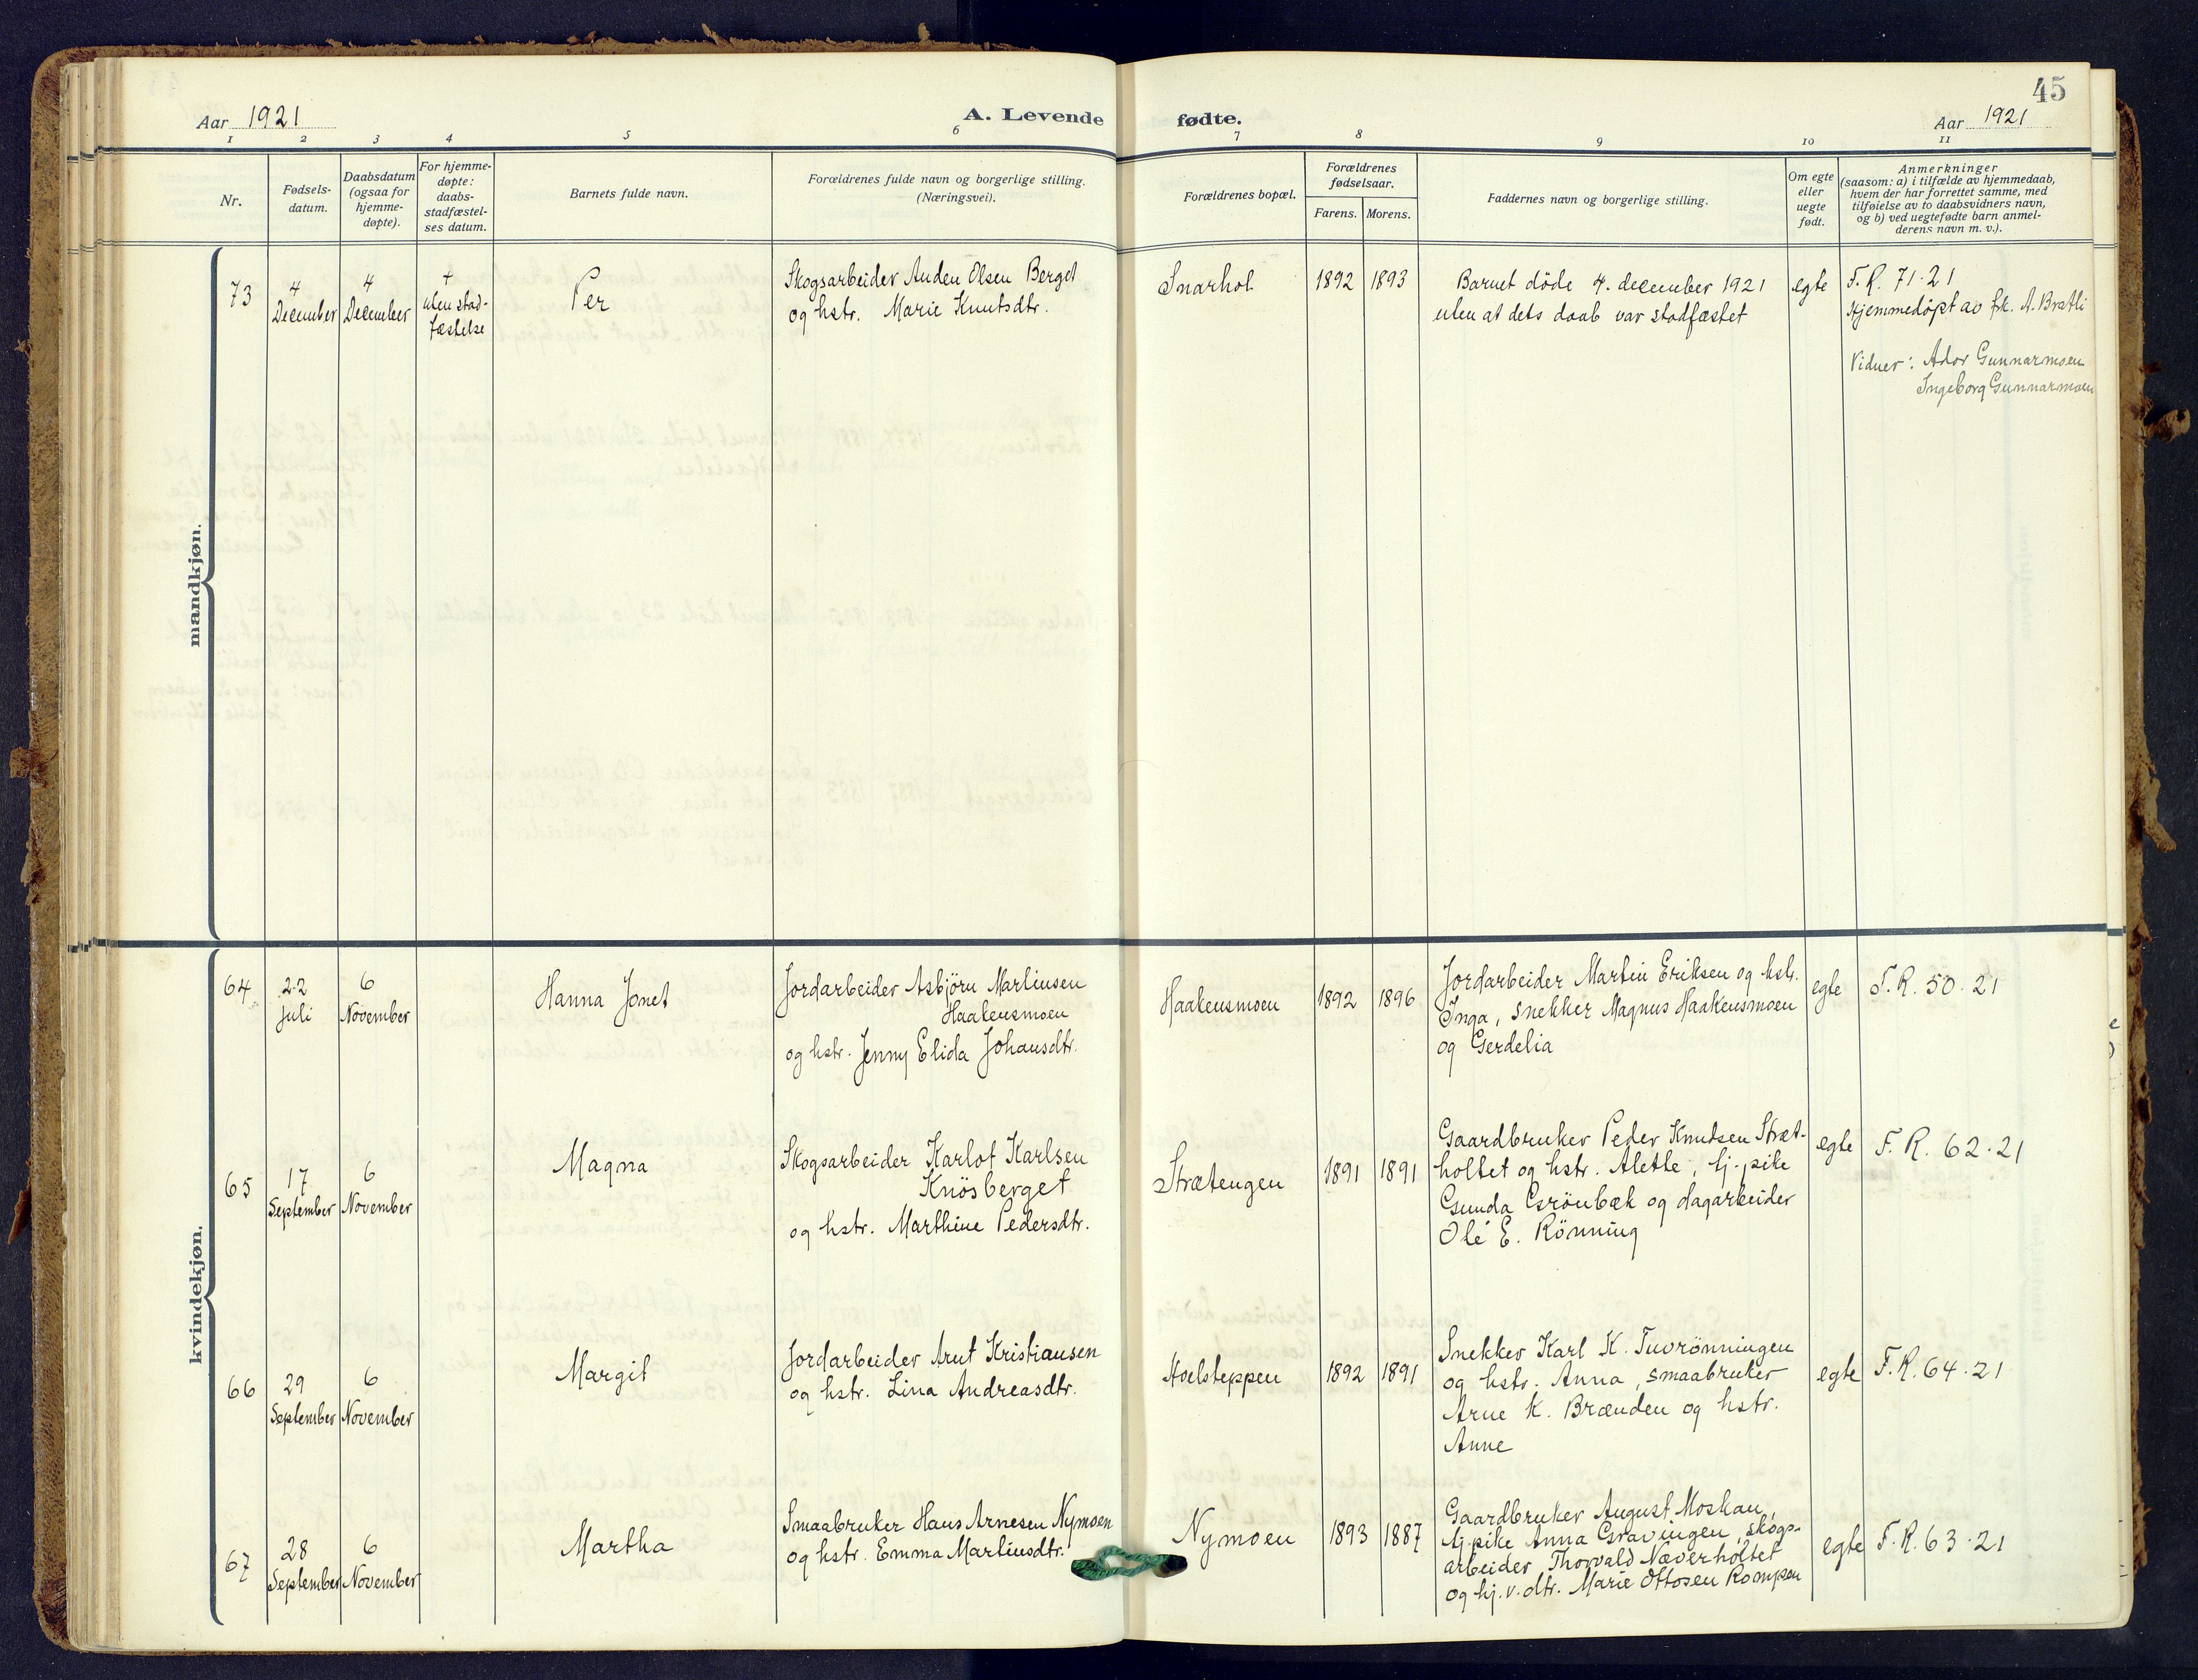 45
Aar 1921
A. Levende fødte.
Aar 1921
1 2 3 4 5 6 7 8 9 10 11
Nr.
Fødsels-
datum.
Daabsdatum
(ogsaa for
hjemme-
døpte).
For hjemme-
døpte:
daabs-
stadfæstel-
ses datum.
Barnets fulde navn.
Forældrenes fulde navn og borgerlige stilling.
(Næringsvei).
Forældrenes bopæl.
Forældrenes
fødselsaar.
Farens. Morens.
Faddernes navn og borgerlige stilling.
Om egte
eller
uegte
født.
Anmerkninger
(saasom: a) i tilfælde av hjemmedaab,
hvem der har forrettet samme, med
tilføielse av to daabsvidners navn,
og b) ved uegtefødte barn anmel-
derens navn m. v.).
mandkjøn.
73
4
December
4
December
+
uten stad-
fæstelse
Per
Skogsarbeider Auden Olsen Berget
og hstr. Marie Knutsdtr.
Snarhol
1892 1893
Barnet døde 4. december 1921
uten at dets daab var stadfæstet
egte
F.R. 71-21
Hjemmedøpt av frk. A. Bratli
Vidner: Ador Gunnarmoen
Ingeborg Gunnarmoen
kvindekjøn.
64
22
juli
6
November
Hanna Jonet
Jordarbeider Asbjörn Martinsen
Haakensmoen
og hstr. Jenny Elida Johansdtr.
Haakensmoen
1892 1896
Jordarbeider Martin Eriksen og hstr.
Inga, snekker Magnus Haakensmoen
og Gerdelia
egte
F.R. 50-21
65
17
September
6
November
Magna
Skogsarbeider Karlot Karlsen
Knösberget
og hstr. Marthine Pedersdtr.
Strætengen
1891 1891
Gaardbruker Peder Knudsen Stræt-
holtet og hstr. Alette, tj.pike
Gunda Grönbæk og dagarbeider
Ole E. Rönning
egte
F.R. 62-21
66
29
September
6
November
Margit
Jordarbeider Arnt Kristiansen
og hstr. Lina Andreasdtr.
Hoelsteppen
1892 1891
Snekker Karl K. Tuvrönningen
og hstr. Anna, smaabruker
Arne K. Brænden og hstr.
Anne
egte
F.R. 64-21
67
28
September
6
November
Martha
Smaabruker Hans Arnesen Nymoen
og hstr. Emma Martinsdtr.
Nymoen
1893 1887
Gaardbruker August Moskau,
tj.pike Anna Gravingen, skogs-
arbeider Thorvald Næverholtet
og hj.v. dtr. Marie Ottosen Rompen
egte
F.R. 63-21